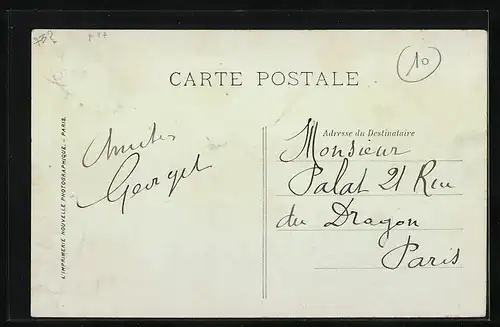 CARTE POSTALE
10
Amitiés
Georget
Adresse du Destinataire
Monsieur
Palat 21 Rue
du Dragon
Paris
L'IMPRIMERIE NOUVELLE PHOTOGRAPHIQUE. - PARIS.